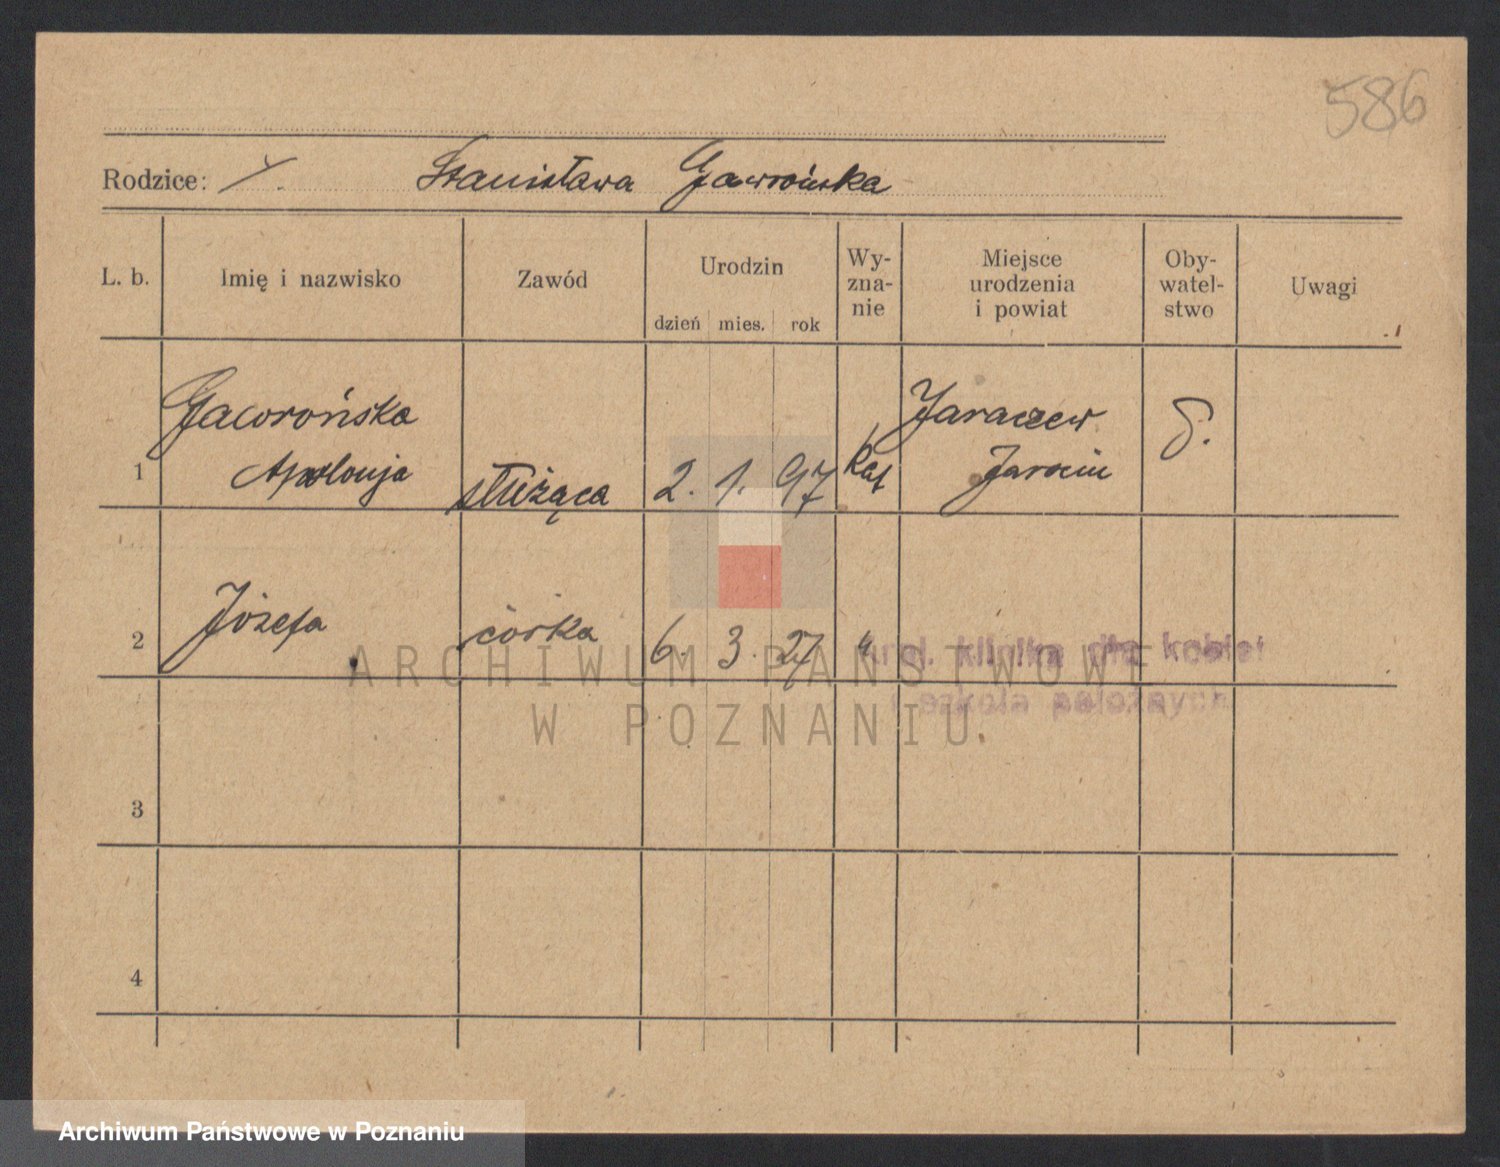 586
Rodzice: Stanisława Gawrońska
L. b. Imię i nazwisko Zawód Urodzin dzień mies. rok Wy-zna-nie Miejsce urodzenia i powiat Oby-watel-stwo Uwagi
Gawrońska Jaraczew
1 Apolonja służąca 2. 1. 97 Kat Jarocin
2 Józefa córka 6. 3. 27 "
klinika dla kobiet
szkoła położnych
3
4
ARCHIWUM PAŃSTWOWE
W POZNANIU
Archiwum Państwowe w Poznaniu